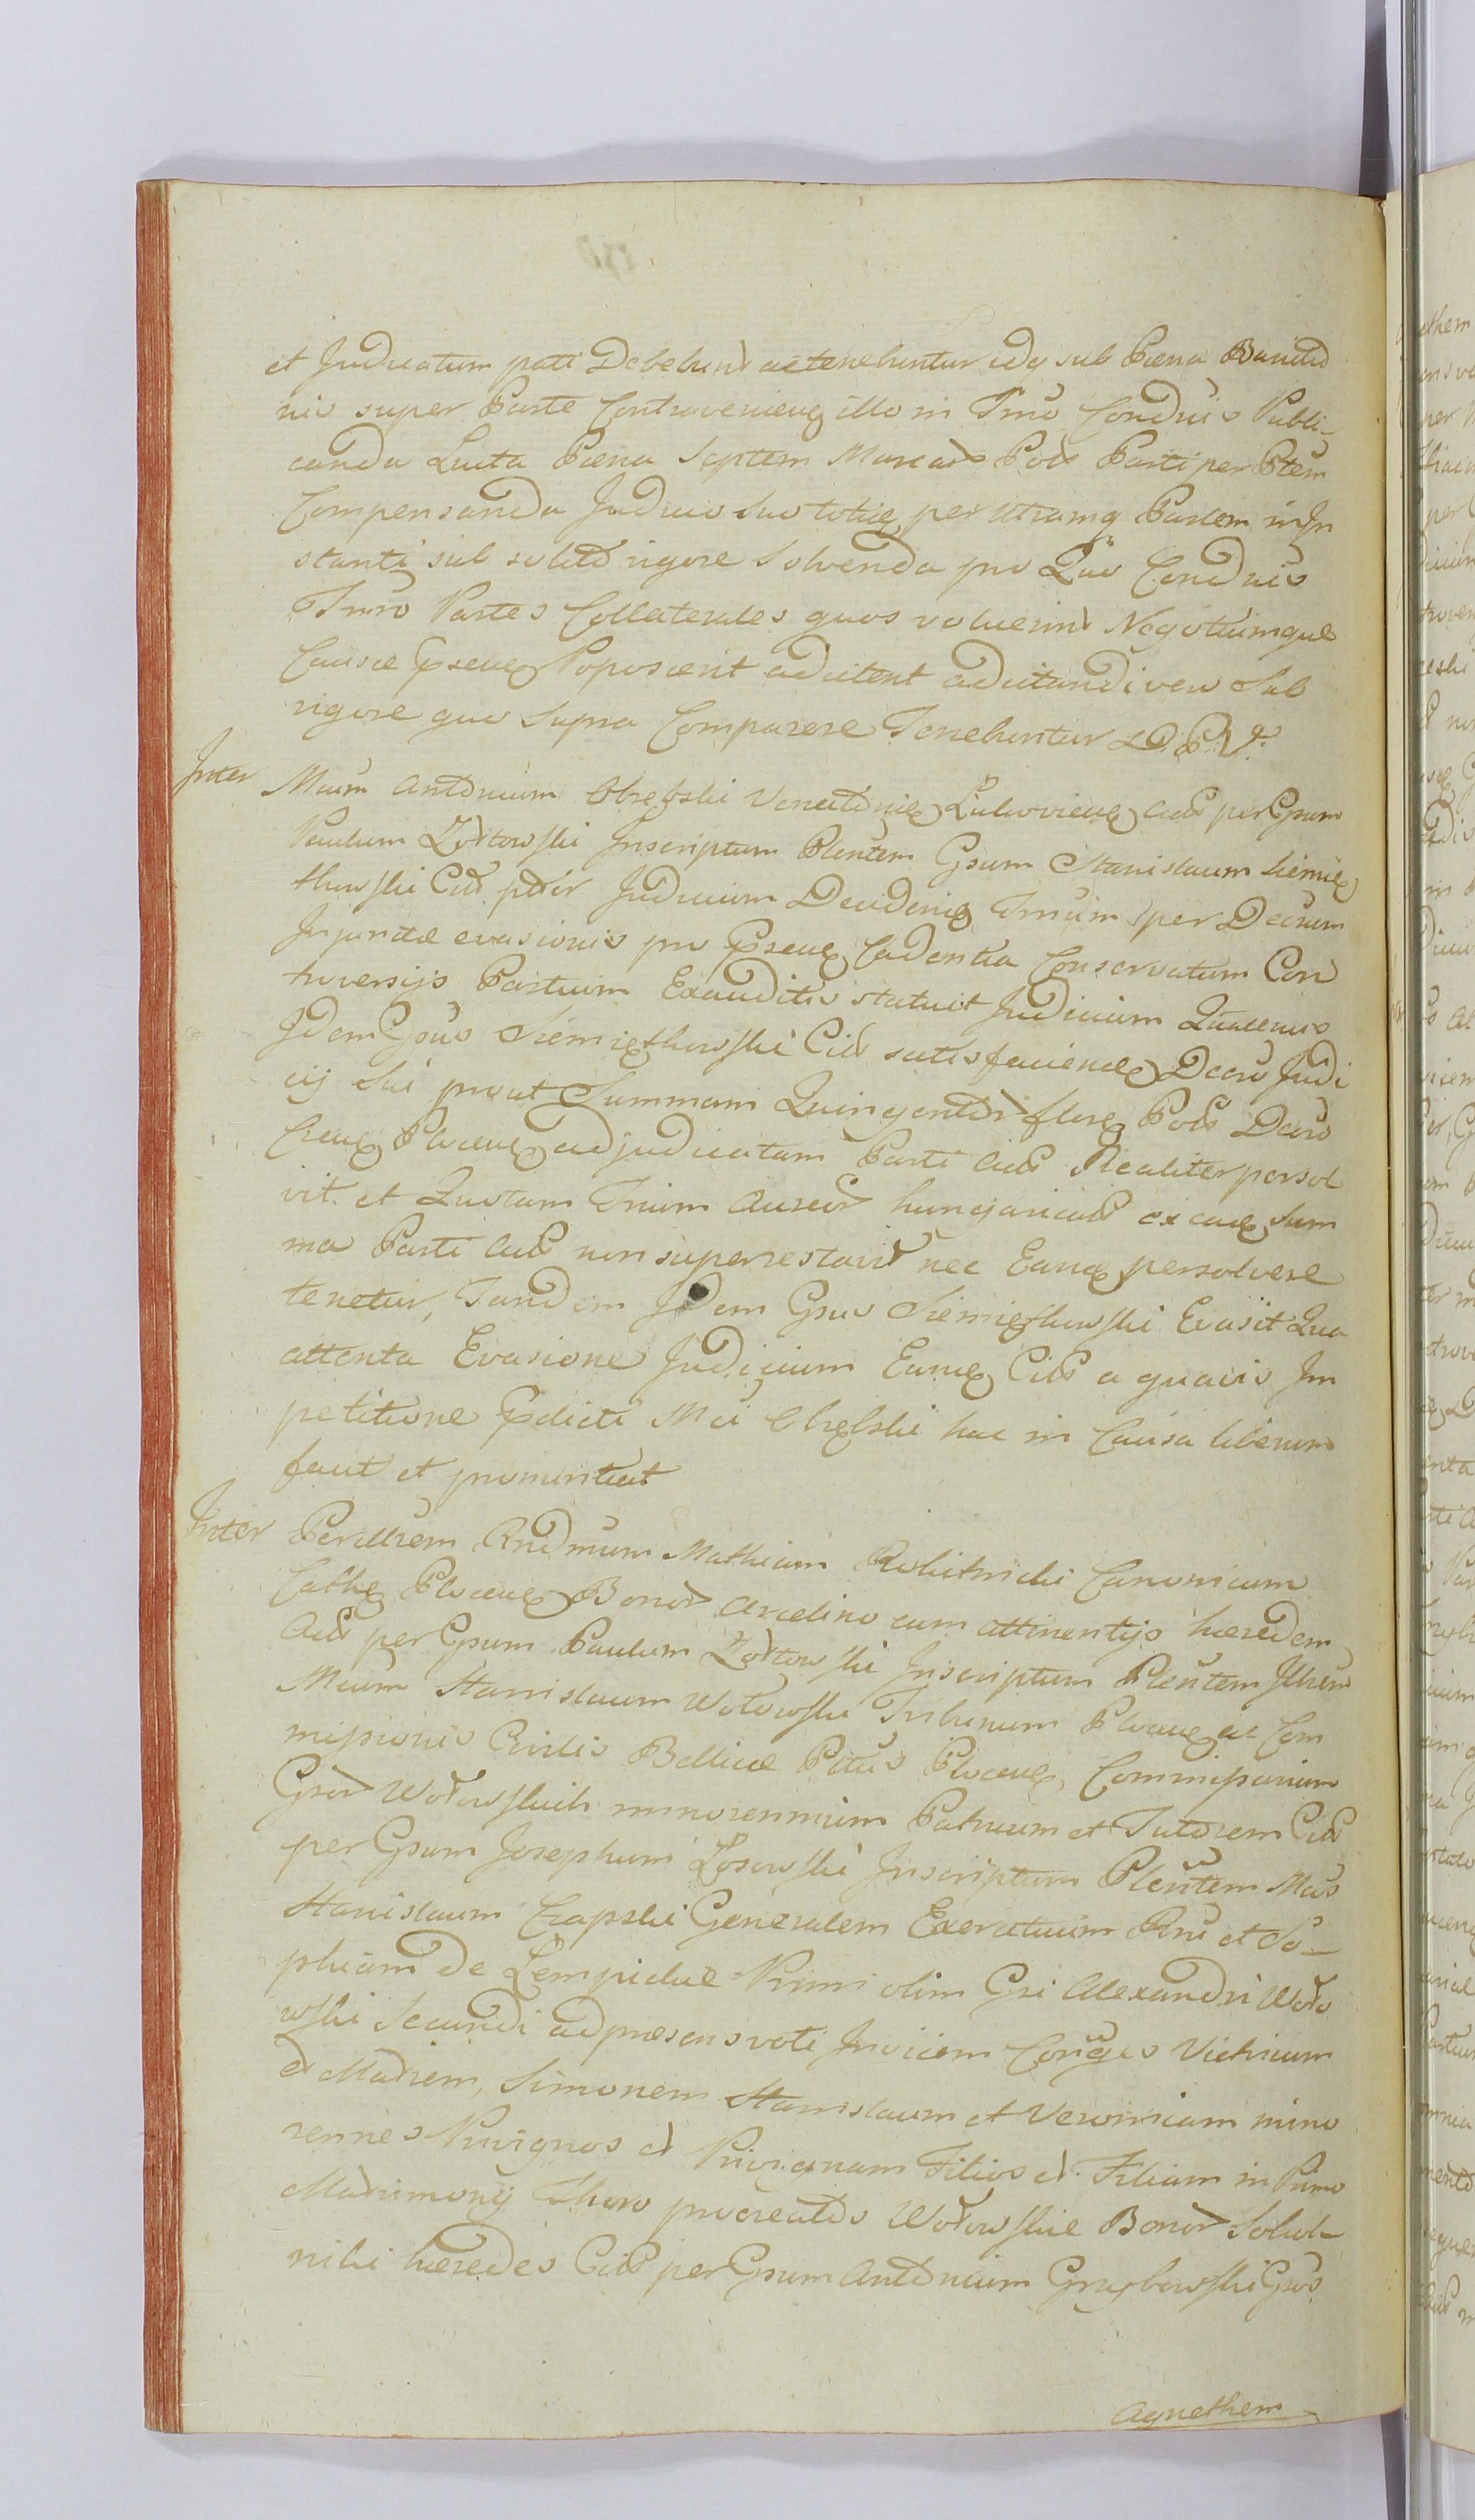 et Judicatum pati Debebunt ac tenebuntur idq sub Pœna Bannitio
nis super Parte Contraveniens illo in Tmno Condnis Publi-
canda Lucta Pœna Septem Marcas Pols Parti per Ptem
Compensanda Judicio Suo toties per utramq Partem in In
stanti sub solito rigore Solvenda pro Quo Condnis
Tmno Partes Collaterales quos voluerint Negotiumque
Causæ Pseus Poposcerit adcitent adcitandi vero Sub
rigore quo Supra Comparere Tenebuntur D. P. V.
Inter Mcum Antonium Obrębski Venatonis Ludoviens Act per Gsum
Paulum Zołtowski Inscriptum Plentem Gsum Stanislaum Siemię
tkowski Citt ptter Judicium Decidens Tmnum per Decrum
Injunctæ evasionis pro Pseus Cadentia Conservatum Con
troversijs Partium Exauditis statuit Judicium Quatenus
Idem Gsus Siemiętkowski Citt satisfaciens Decro Judi
cij Sui prout Summam Quingentor flor Pols Decro
Crens Plocens adjudicatam Parti Act Realiter persol
vit et Quotam Trium Aureor hungarical ex eadem Sum
ma Parti Act non superrestavit nec Eand persolvere
tenetur, Tandem Idem Gsus Siemiętkowski Evasit Qua
attenta Evasione Judicium Eund Citt a quavis Im
petitione Pdicti Mci Obrębski hac in Causa liberum
facit et pronuntiat
Inter Perillrem Rndmum Mathiam Rokitnicki Canonicum
Cathe Plocens Bonor Arcelino cum attinentijs hæredem
Act per Gsum Paulum Zołtowski Inscriptum Plentem Illrem
Mcum Stanislaum Wołowski Tribunum Plocens ac Com
missionis Civilis Bellicæ Pttus Plocens, Commissarium
Gsor Wołowskich minorennium Patruum et Tutorem Citt
per Gsum Josephum Łosowski Inscriptum Plentem Mcos
Stanislaum Czapski Generalem Exercituum Rni et So-
phiam de Lempickie Primi olim Gsi Alexandri Woło
wski Secundi ad præsens voti Invicem Conges Vitricum
et Matrem, Simonem Stanislaum et Veronicam mino
rennes Privignos et Privignam Filios et Filiam in Primo
Matrimonij Thoro procreatos Wołowskie Bonor
hæredes Citt per Gsum Antonium Grzybowski Gsos
Agnethem